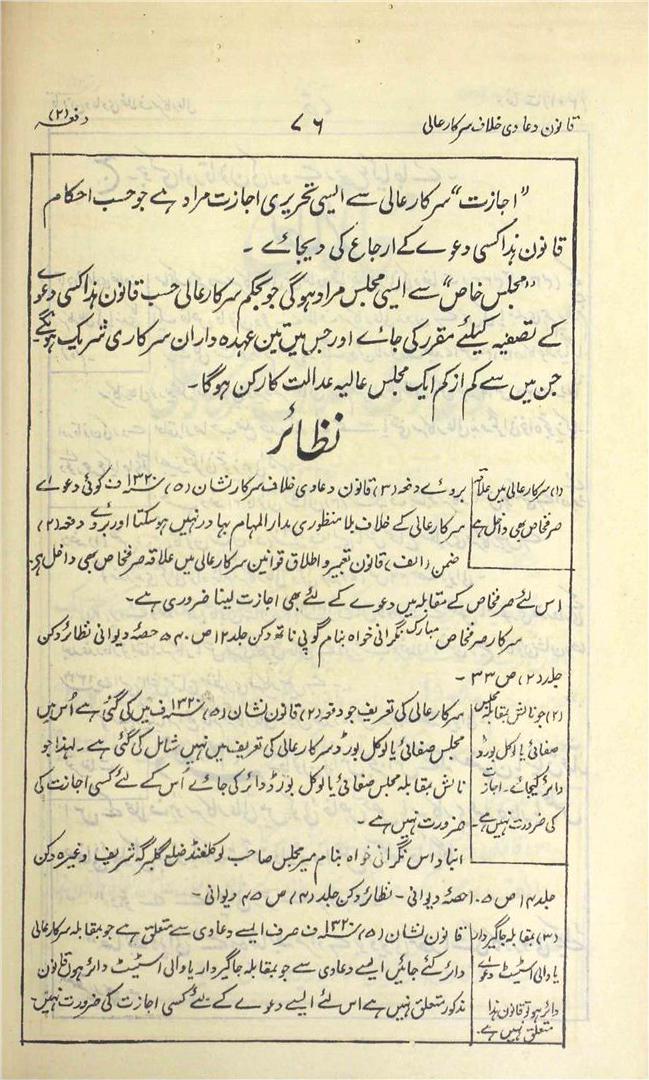 قانون دعاوی خلاف سرکارعالی
۷۶
دفعہ (۲)
"اجازت" سرکارعالی سے ایسی تحریری اجازت مراد ہے جو حسب احکام
قانون ہذا کسی دعوے کے ارجاع کی دیجائے ۔
"مجلس خاص" سے ایسی مجلس مراد ہوگی جو بحکم سرکارعالی حسب قانون ہذا کسی دعوے
کے تصفیہ کیلئے مقرر کی جائے اور جس میں تین عہدہ داران سرکاری شریک ہونگے
جن میں سے کم از کم ایک مجلس عالیہ عدالت کا رکن ہوگا۔
نظائر
(۱) سرکارعالی میں علاقہ
صرفخاص بھی داخل ہے
بروئے دفعہ (۳) قانون دعاوی خلاف سرکار نشان (۵) ۱۳۲۰ ف کوئی دعوے
سرکارعالی کے خلاف بلا منظوری مدارالمہام بہادر نہیں ہوسکتا اور بروے دفعہ (۲)
ضمن (الف) قانون تعبیر و اطلاق قوانین سرکارعالی میں علاقہ صرفخاص بھی داخل ہے۔
اس لئے صرفخاص کے مقابلہ میں دعوے کے لئے بھی اجازت لینا ضروری ہے۔
سرکار صرفخاص مبارک نگرانی خواہ بنام گوپی ناتھ دکن جلد ۱۲ ص ۵۴۰ حصۂ دیوانی نظائر دکن
جلد (۲) ص ۳۳ ۔
(۲) جو نالش بمقابلہ مجلس
صفائی یا لوکل بورڈ
دائر کیجائے۔ اجازت
کی ضرورت نہیں ہے
سرکارعالی کی تعریف جو دفعہ (۲) قانون نشان (۵) ۱۳۲۰ ف میں کی گئی ہے اُس میں
مجلس صفائی یا لوکل بورڈ و سرکارعالی کی تعریف میں نہیں شامل کی گئی ہے۔ لہذا جو
نالش بمقابلہ مجلس صفائی یا لوکل بورڈ دائر کی جائے اُس کے لئے کسی اجازت کی
ضرورت نہیں ہے ۔
انباداس نگرانی خواہ بنام میر مجلس صاحب لوکلفنڈ ضلع گلبرگہ شریف وغیرہ دکن
جلد ۱۴ ص ۱۰۵ حصۂ دیوانی ۔ نظائر دکن جلد (۴) ص ۴۵ دیوانی ۔
(۳) بمقابلہ جاگیردار
یا والی اسٹیٹ دعوے
دائر ہو تو قانون ہذا
متعلق نہیں ہے۔
قانون نشان (۵) ۱۳۲۰ ف صرف ایسے دعاوی سے متعلق ہے جو بمقابلہ سرکارعالی
دائر کئے جائیں ایسے دعاوی سے جو بمقابلہ جاگیردار یا والی اسٹیٹ دائر ہوں قانون
مذکور متعلق نہیں ہے اس لئے ایسے دعوے کے لئے کسی اجازت کی ضرورت نہیں۔